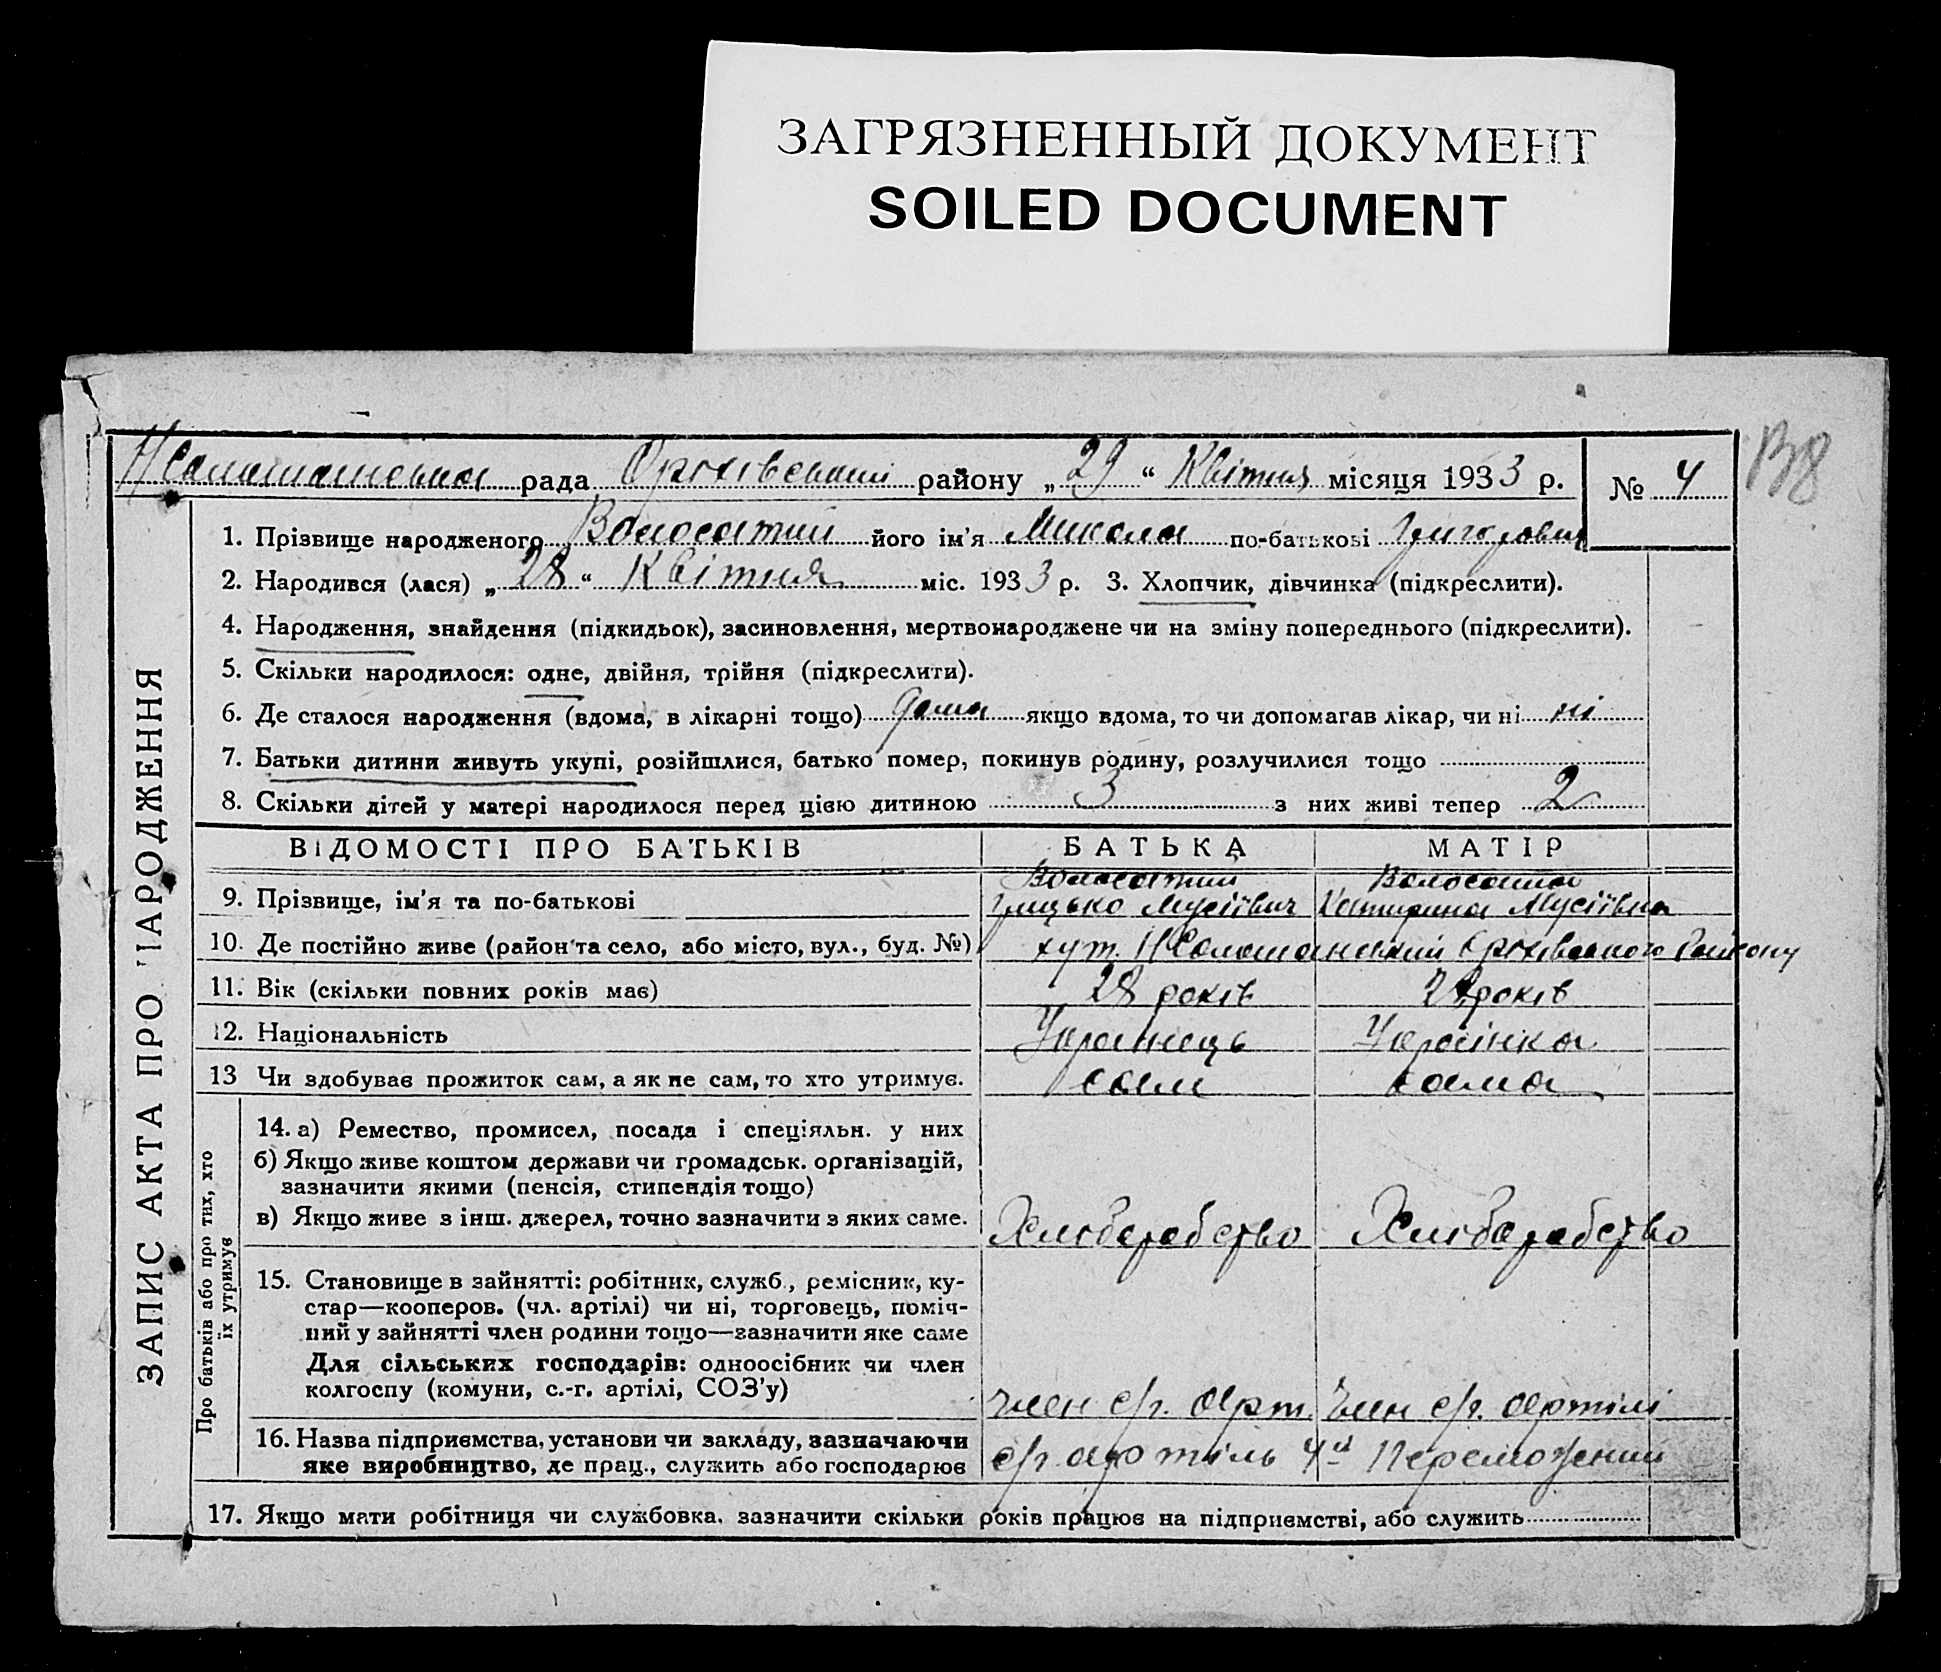 ЗАГРЯЗНЕННЫЙ ДОКУМЕНТ
SOILED DOCUMENT
В8
рада Оріхівський району „ 29 “ Квітня місяця 1933 р. № 4
ЗАПИС АКТА ПРО НАРОДЖЕННЯ
1. Прізвище народженого Волосатий його ім'я Микола по-батькові Григорович
2. Народився (лася) „ 28 “ Квітня міс. 1933 р. 3. Хлопчик, дівчинка (підкреслити).
4. Народження, знайдення (підкидьок), засиновлення, мертвонароджене чи на зміну попереднього (підкреслити).
5. Скільки народилося: одне, двійня, трійня (підкреслити).
6. Де сталося народження (вдома, в лікарні тощо) дома якщо вдома, то чи допомагав лікар, чи ні ні
7. Батьки дитини живуть укупі, розійшлися, батько помер, покинув родину, розлучилися тощо
8. Скільки дітей у матері народилося перед цією дитиною 3 з них живі тепер 2
ВІДОМОСТІ ПРО БАТЬКІВ БАТЬКА МАТІР
Волосатий Волосата
9. Прізвище, ім'я та по-батькові Грицько Мусіївич Катирина Мусіївна
10. Де постійно живе (район та село, або місто, вул., буд. №) хут. Оріхівського Району
11. Вік (скільки повних років має) 28 років років
12. Національність Українець Українка
13 Чи здобуває прожиток сам, а як не сам, то хто утримує. сам сама
Про батьків або про тих, хто
їх утримує
14. а) Ремество, промисел, посада і спеціяльн. у них
б) Якщо живе коштом держави чи громадськ. організацій,
зазначити якими (пенсія, стипендія тощо)
в) Якщо живе з інш. джерел, точно зазначити з яких саме. Хліборобство Хліборобство
15. Становище в зайнятті: робітник, служб., ремісник, ку-
стар—кооперов. (чл. артілі) чи ні, торговець, поміч-
ний у зайнятті член родини тощо—зазначити яке саме
Для сільських господарів: одноосібник чи член
колгоспу (комуни, с.-г. артілі, СОЗ'у)
Член с/г. Арт. Член с/г. Артілі
16. Назва підприємства, установи чи закладу, зазначаючи
яке виробництво, де прац., служить або господарює с/г артіль
17. Якщо мати робітниця чи службовка, зазначити скільки років працює на підприємстві, або служить